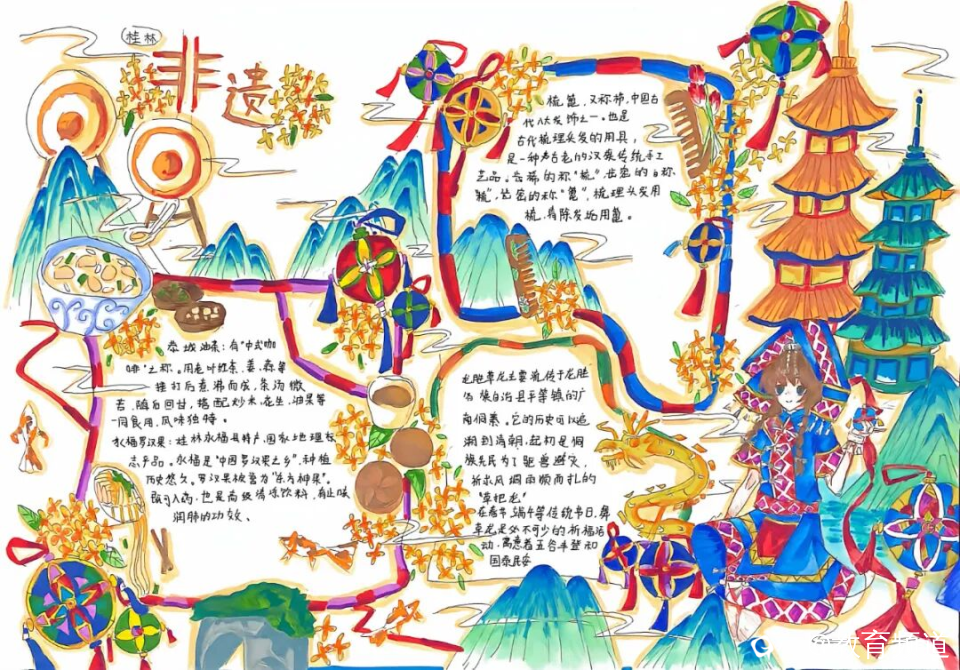 桂林
非遗
梳篦,又称栉,中国古
代八大发饰之一。也是
古代梳理头发的用具,
是一种古老的汉族传统手工
艺品。齿稀的称"梳",齿密的
称"篦",梳理头发用
梳,清除发垢用篦。
恭城油茶:有"中式咖
啡"之称。用老叶红茶、姜、蒜等
捶打后煮沸而成,茶汤微
苦,随后回甘,搭配炒米、花生、油果等
一同食用,风味独特。
永福罗汉果:桂林永福县特产,国家地理标
志产品。永福是"中国罗汉果之乡",种植
历史悠久。罗汉果被誉为"东方神果",
既可入药,也是高级清凉饮料,有止咳
润肺的功效、
龙胜草龙主要流传于龙胜
各族自治县平等镇的广
南侗寨。它的历史可以追
溯到清朝,起初是侗
族先民为了驱兽避灾,
祈求风调雨顺而扎的
"草把龙"
在春节、端午等传统节日,舞
草龙是必不可少的祈福活
动,寓意着五谷丰登和
国泰民安
教育频道